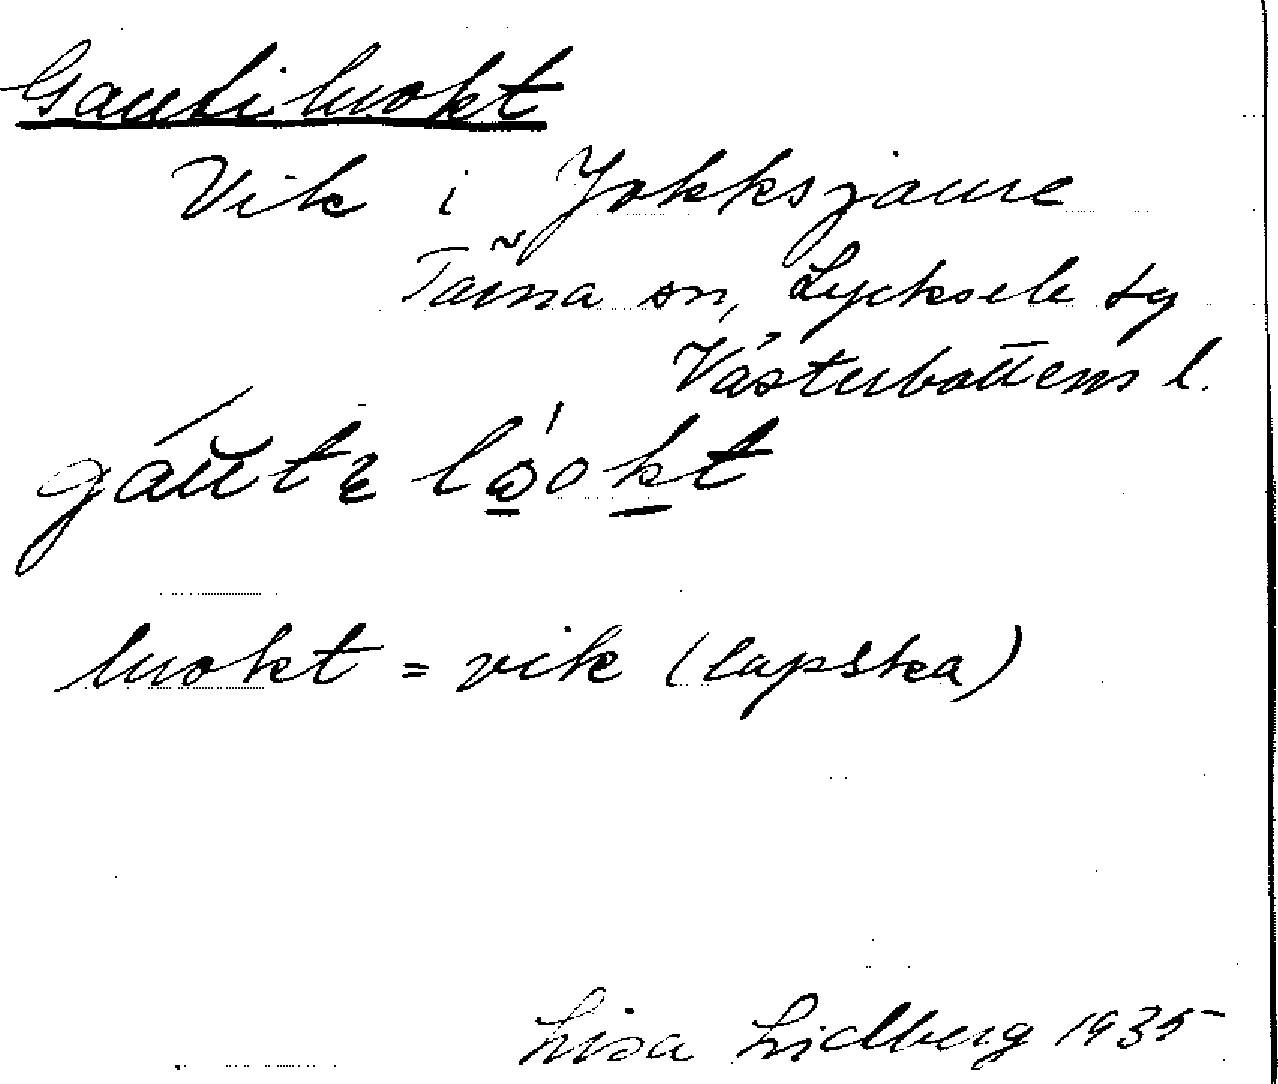 Gautiluokt
Vik i Jokksjaure
Tärna sn, Lycksele tg
Västerbottens l.
luokt = vik (lapska)
Lisa Lidberg 1935